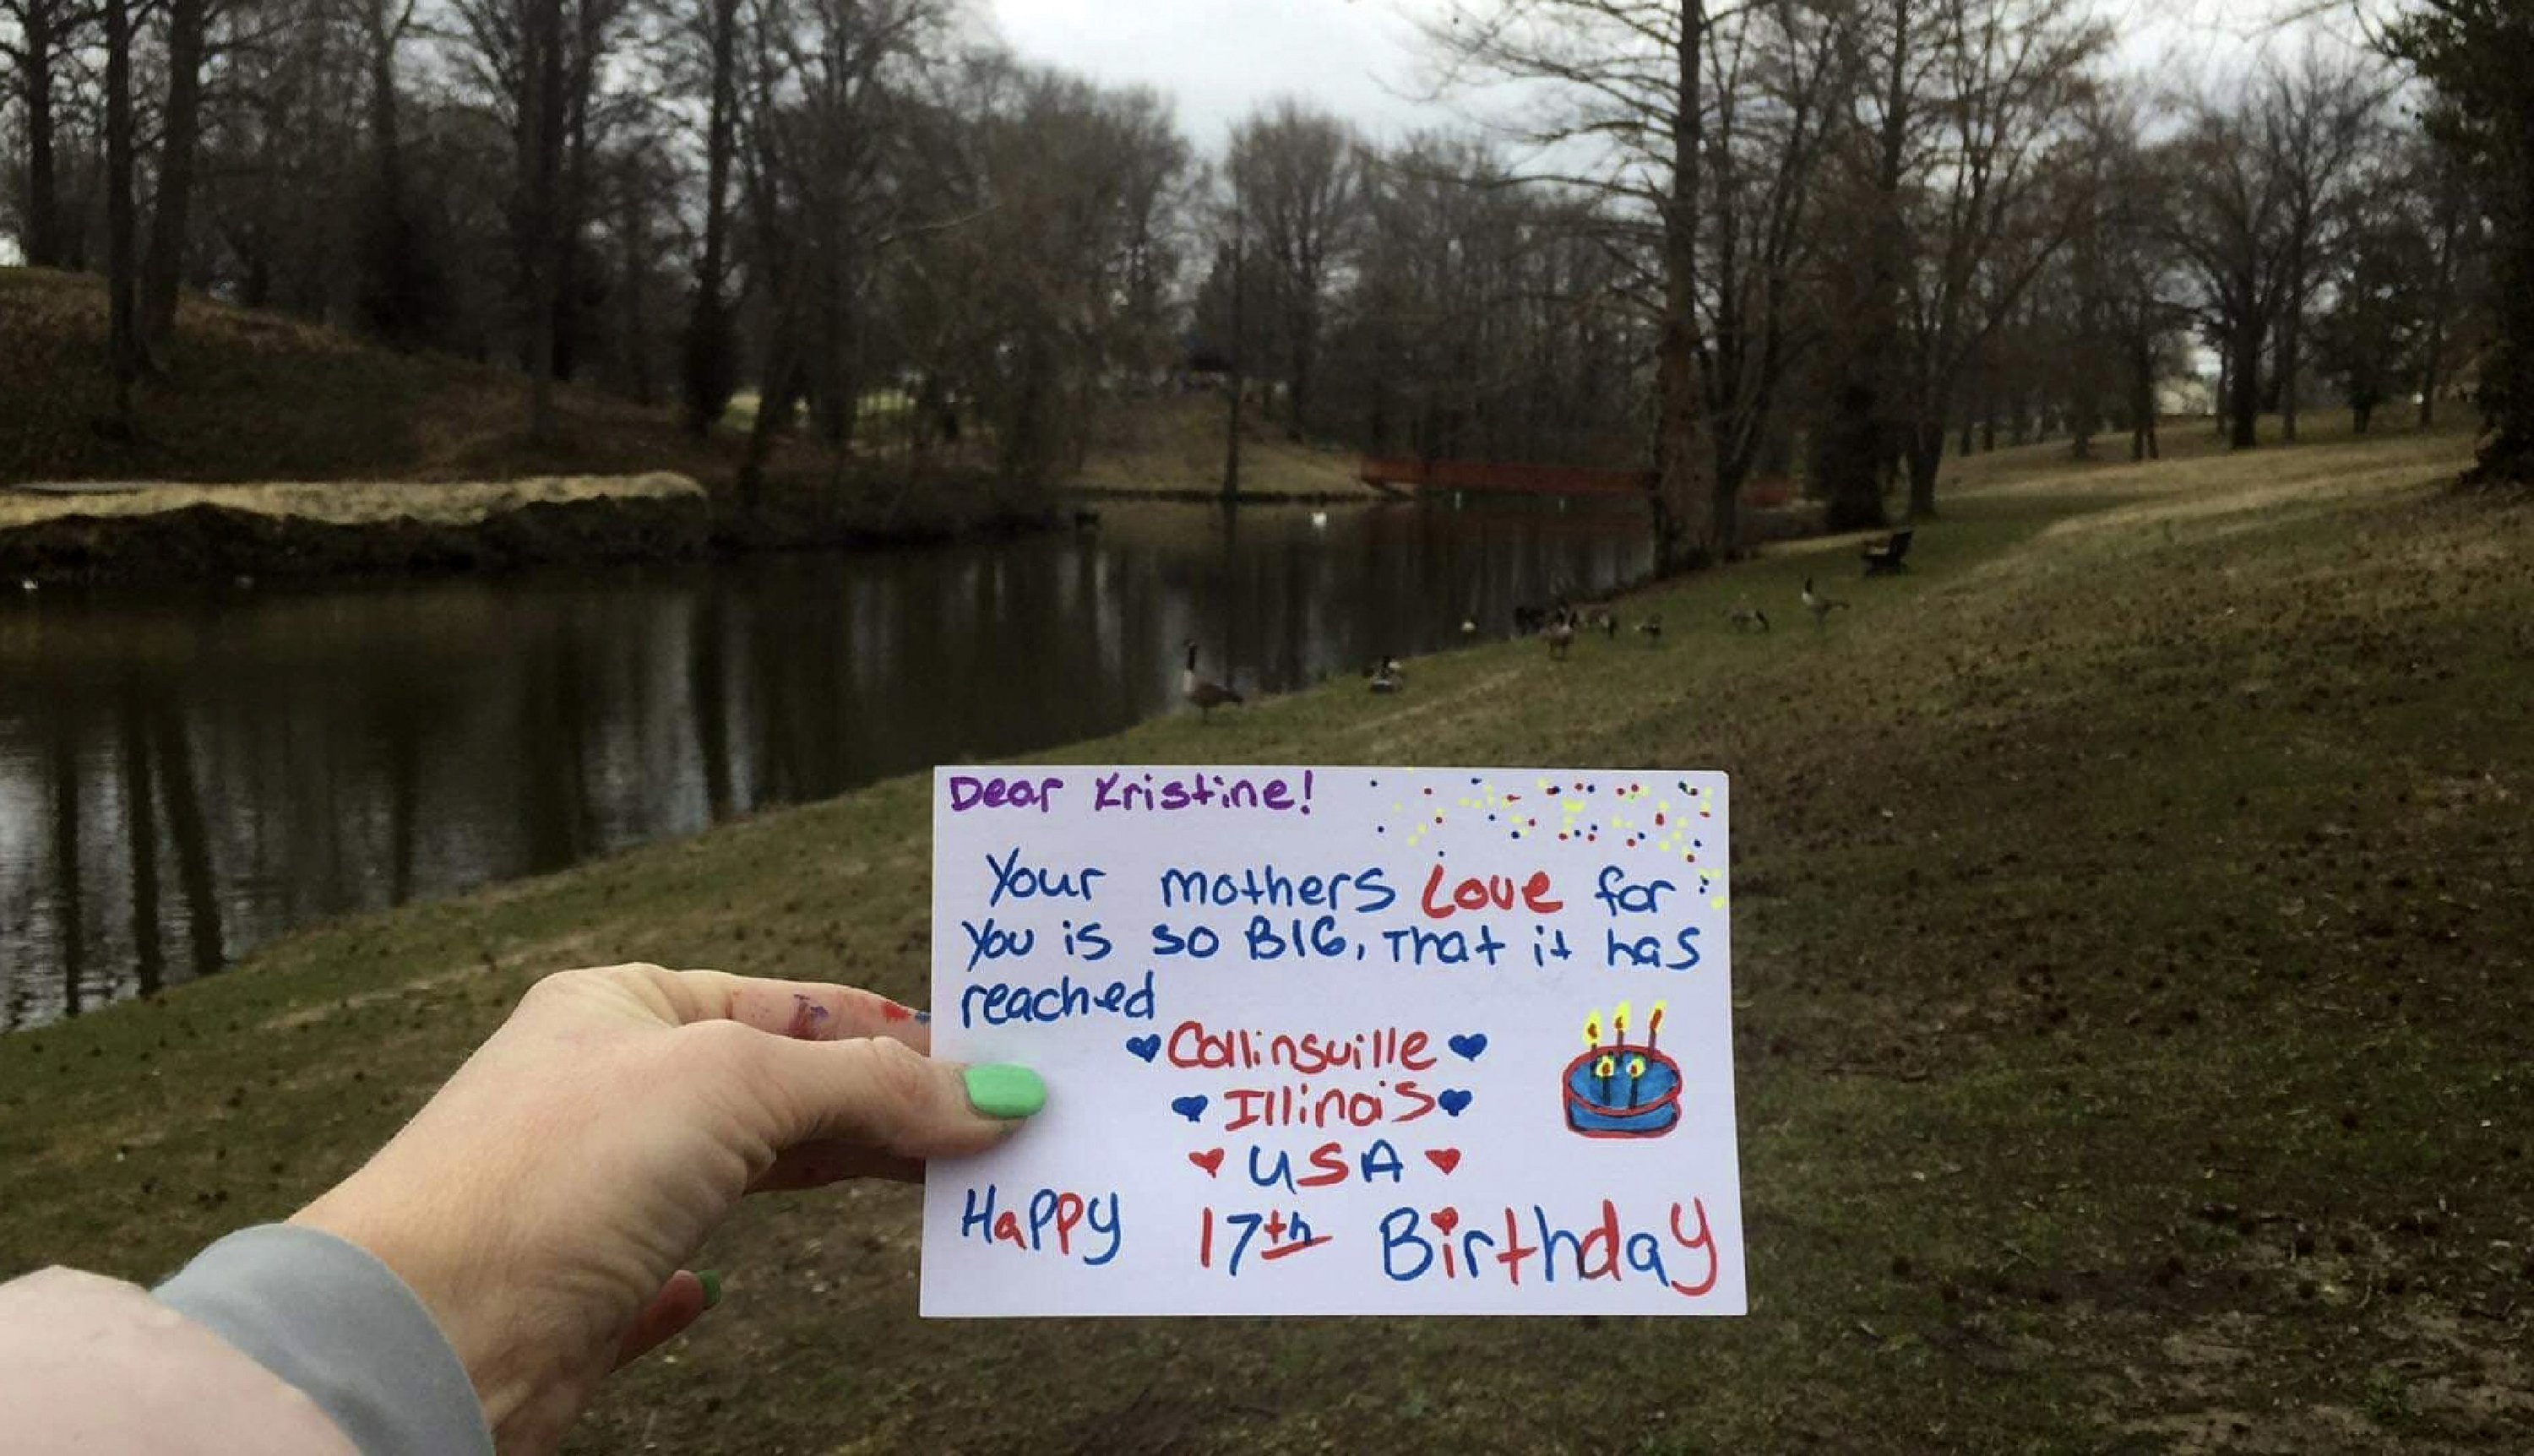 Dear Kristine!
Your mothers Love for
You is so BIG, That it has
reached
Collinsville
Illinois
USA
Happy 17th Birthday